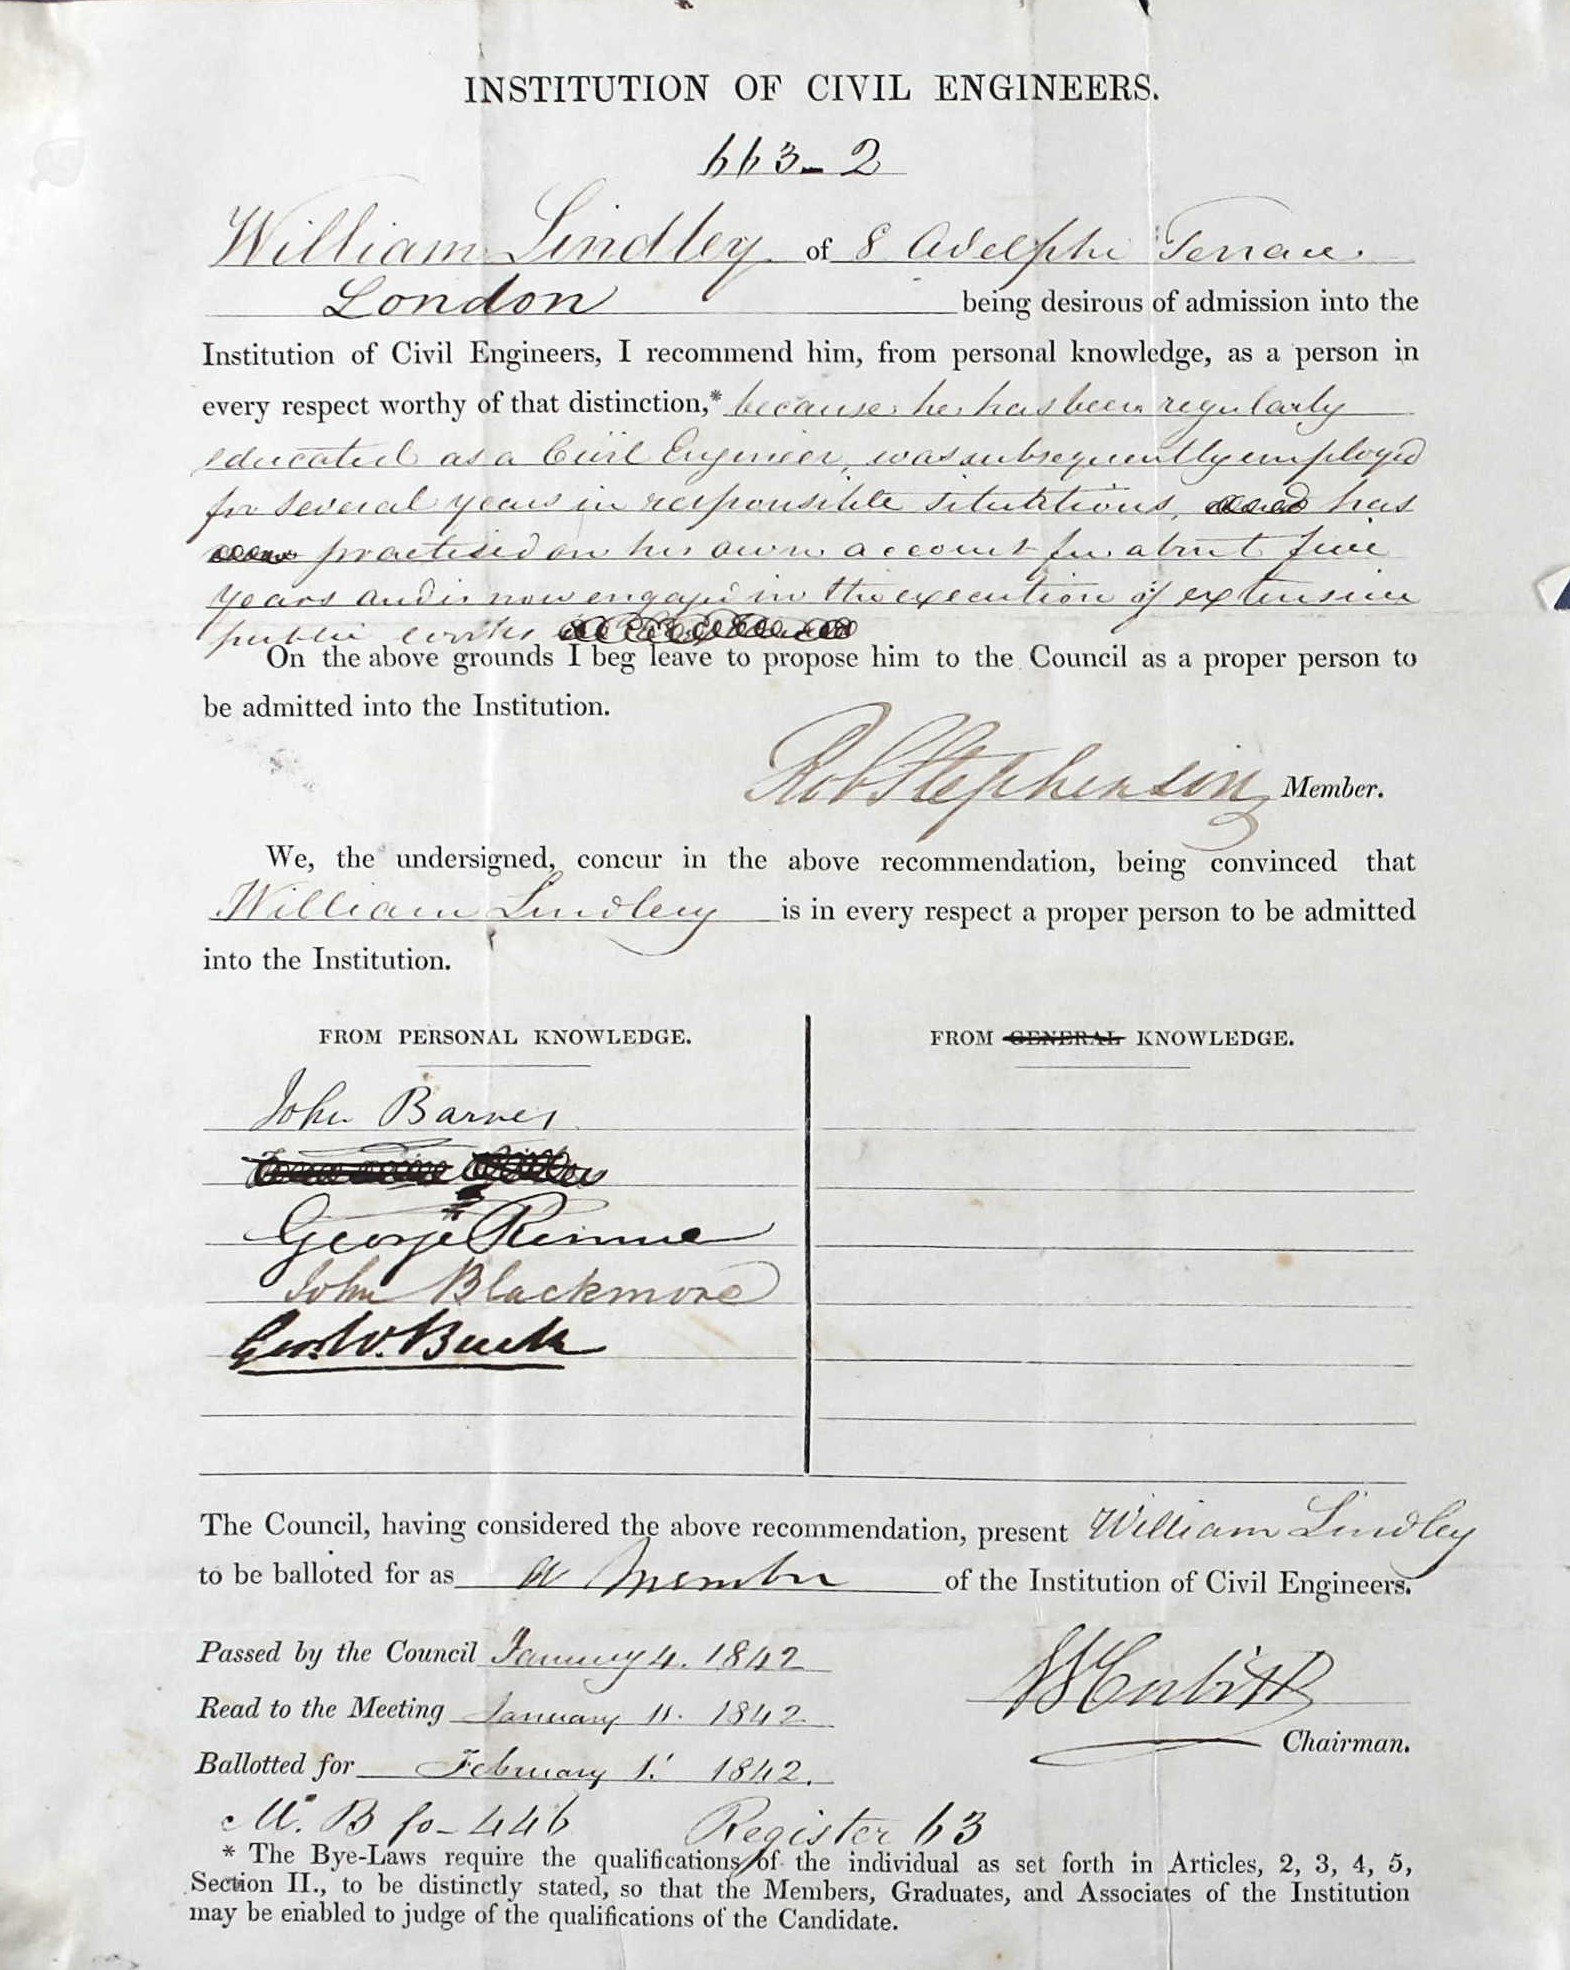 INSTITUTION OF CIVIL ENGINEERS.
663-2
William Lindley of 8 Adelphi Terrace.
London being desirous of admission into the
Institution of Civil Engineers, I recommend him, from personal knowledge, as a person in
every respect worthy of that distinction,* because he has been regularly
educated as a Civil Engineer, was subsequently employed
for several years in responsible situations, has
practised on his own account for about five
years and is now engaged in the execution of extensive
public works
On the above grounds I beg leave to propose him to the Council as a proper person to
be admitted into the Institution.
Rob Stephenson Member.
We, the undersigned, concur in the above recommendation, being convinced that
William Lindley is in every respect a proper person to be admitted
into the Institution.
FROM PERSONAL KNOWLEDGE.
FROM GENERAL KNOWLEDGE.
John Barnes
George Rennie
John Blackmore
Geo. W. Buck
The Council, having considered the above recommendation, present William Lindley
to be balloted for as a Member of the Institution of Civil Engineers.
Passed by the Council January 4. 1842
Read to the Meeting January 11. 1842
Ballotted for February 1. 1842.
W Cubitt
Chairman.
M. B fo- 446 Register 63
* The Bye-Laws require the qualifications of the individual as set forth in Articles, 2, 3, 4, 5,
Section II., to be distinctly stated, so that the Members, Graduates, and Associates of the Institution
may be enabled to judge of the qualifications of the Candidate.